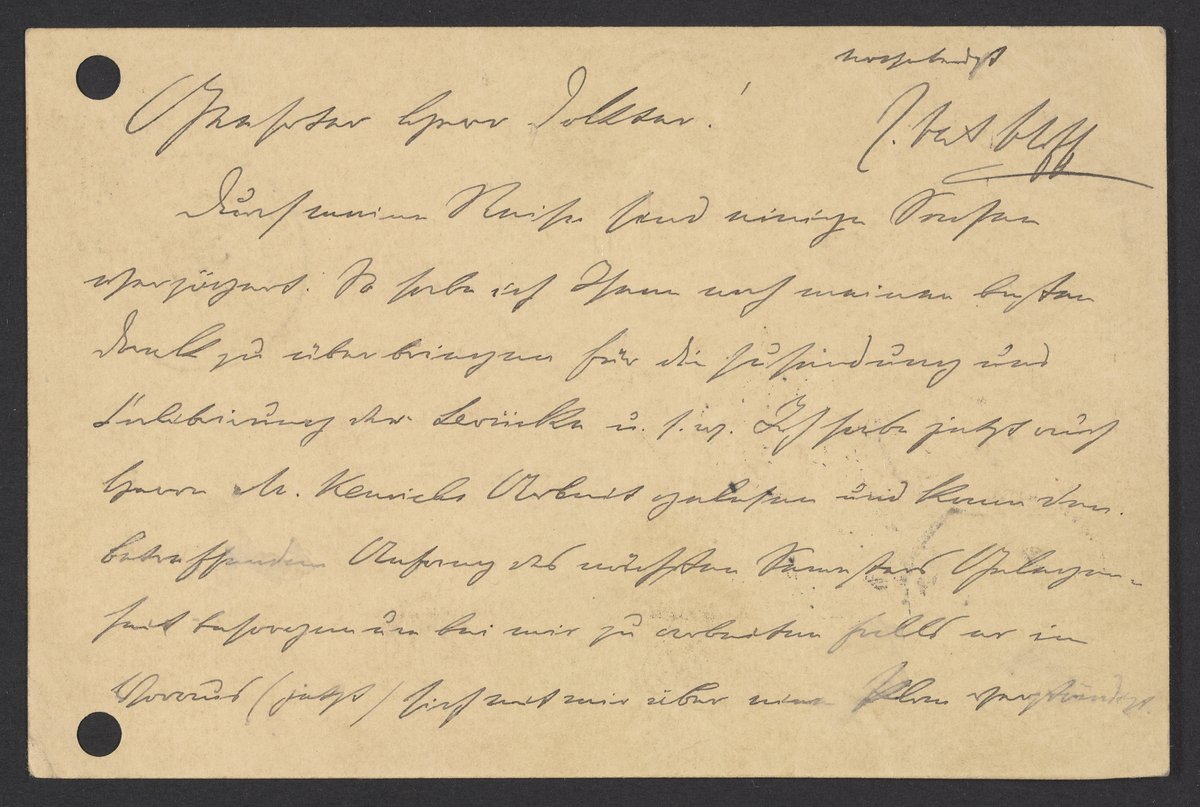 Geehrter Herr Doktor!
Durch meine Reise sind einige Sachen
verzögert. So habe ich Ihnen noch meinen besten
Dank zu überbringen für die Zusendung und
der Brücke u. s. w. Ich habe jetzt auch
Herrn M. Arbeit gelesen und kann den
betreffenden Anfang des nächsten Semesters Gelegen-
heit besorgen um bei mir zu arbeiten falls er im
Voraus (jetzt) sich mit mir über einen Plan verständigt.
hochachtend